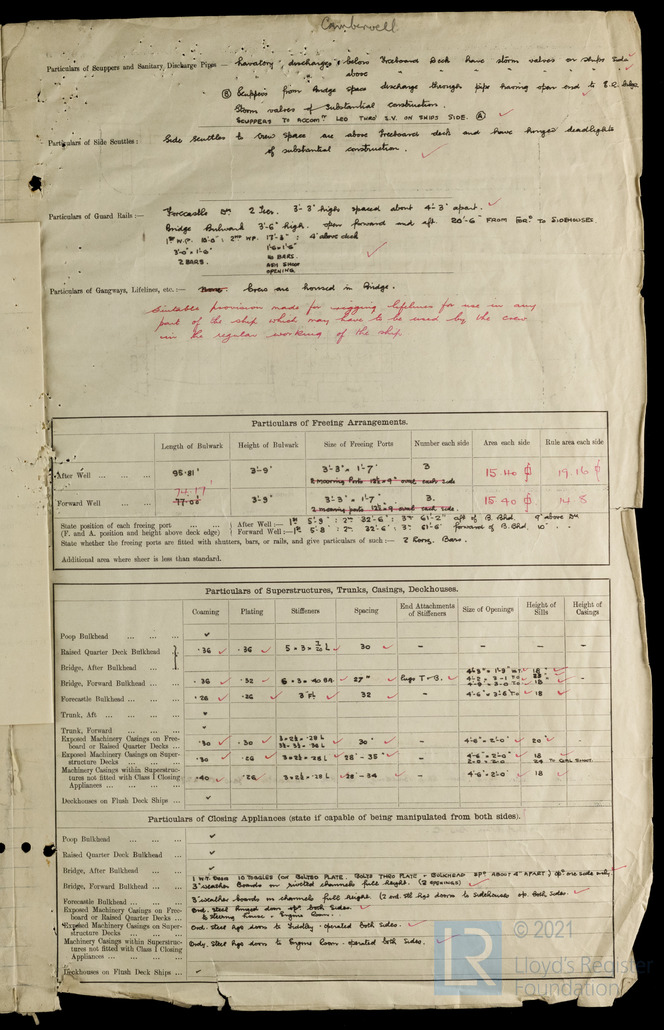 Camberwell
Particulars of Scuppers and Sanitary Discharge Pipes — Lavatory discharges below Freeboard Deck have storm valves on ships side
above " " " " " "
Ⓑ Scuppers from Bridge space discharge through pipe having open end to E.R. bilge
Storm valves of substantial construction.
SCUPPERS TO ACCOMN LED THRO' S.V. ON SHIPS SIDE. Ⓐ
Particulars of Side Scuttles: Side Scuttles to Crew Space are above freeboard deck and have hinged deadlights
of substantial construction.
Particulars of Guard Rails :— Forecastle Dk 2 Tiers. 3'-3" high spaced about 4'-3" apart.
Bridge Bulwark 3'-6" high. open forward and aft. 20'-6" FROM FORD TO SIDEHOUSES
2 BARS.
OPENING
Particulars of Gangways, Lifelines, etc.:— None. Crew are housed in Bridge.
Suitable provision made for rigging lifelines for use in any
part of the ship which may have to be used by the crew
in the regular working of the ship
Particulars of Freeing Arrangements.
Length of Bulwark Height of Bulwark Size of Freeing Ports Number each side Area each side Rule area each side
After Well ... ... ... 95·81' 3'-9" 3'-3" × 1'-7" 3 15·40 19·16
2 mooring Ports 12½ × 9" oval each side
74.17
Forward Well ... ... 77·00' 3'-9" 3'-3" × 1'-7" 3. 15·40 14·8
2 mooring ports 12½ × 9 oval each side.
State position of each freeing port ... ... After Well:— 1st 5'-9" : 2nd 32'-6" : 3rd 61'-2" aft of B. Bhd. 9" above Dk
(F. and A. position and height above deck edge) Forward Well:— 1st 5'-8" : 2nd 32'-6" : 3rd 61'-6" forward of B. Bhd. 10" " "
State whether the freeing ports are fitted with shutters, bars, or rails, and give particulars of such:— 2 Horiz. Bars.
Additional area where sheer is less than standard.
Particulars of Superstructures, Trunks, Casings, Deckhouses.
Coaming Plating Stiffeners Spacing End Attachments of Stiffeners Size of Openings Height of Sills Height of Casings
Poop Bulkhead ... ... ...
Raised Quarter Deck Bulkhead ·36 ·36 30 – – – –
Bridge, After Bulkhead ...
Bridge, Forward Bulkhead ... ·36 ·32 27" Lugs T & B.
Forecastle Bulkhead ... ... ·26 ·26 32 – 18
Trunk, Aft ... ... ...
Trunk, Forward ... ...
Exposed Machinery Casings on Free-
board or Raised Quarter Decks ... ·30 ·30 3 × 2½ × ·28 L 30" – 4'-6" × 2'-0" 20"
Exposed Machinery Casings on Super-
structure Decks ... ... ... ·30 ·26 3 × 2½ × ·28 L 28" - 35" – 4'-6" × 2'-0" 18
Machinery Casings within Superstruc-
tures not fitted with Class I Closing
Appliances ... ... ... ·40 ·26 3 × 2½ × ·28 L 28" - 34 – 4'-6" × 2'-0" 18
Deckhouses on Flush Deck Ships ...
Particulars of Closing Appliances (state if capable of being manipulated from both sides).
Poop Bulkhead ... ... ...
Raised Quarter Deck Bulkhead ...
Bridge, After Bulkhead ... 1 W.T. DOOR 10 TOGGLES (OR BOLTED PLATE. BOLTS THRO PLATE & BULKHEAD ABOUT 4" APART) opd one side only,
Bridge, Forward Bulkhead ... 3" weather Boards in riveted channels full height. (2 OPENINGS)
Forecastle Bulkhead ... ... 3" weather boards in channels full height. (2 ord. Stl hgd doors to Sidehouses op. both sides.
Exposed Machinery Casings on Free-
board or Raised Quarter Decks ... Ord. Steel hinged door opd both sides.
to Steering house & Engine Room.
Exposed Machinery Casings on Super-
structure Decks ... ... ... Ord. steel hgd doors to Fiddley. operated both sides.
Machinery Casings within Superstruc-
tures not fitted with Class I Closing
Appliances ... ... ... Ordy. Steel hgd doors to Engine Room. operated both sides.
Deckhouses on Flush Deck Ships ...
LR
© 2021
Lloyd's Register
Foundation